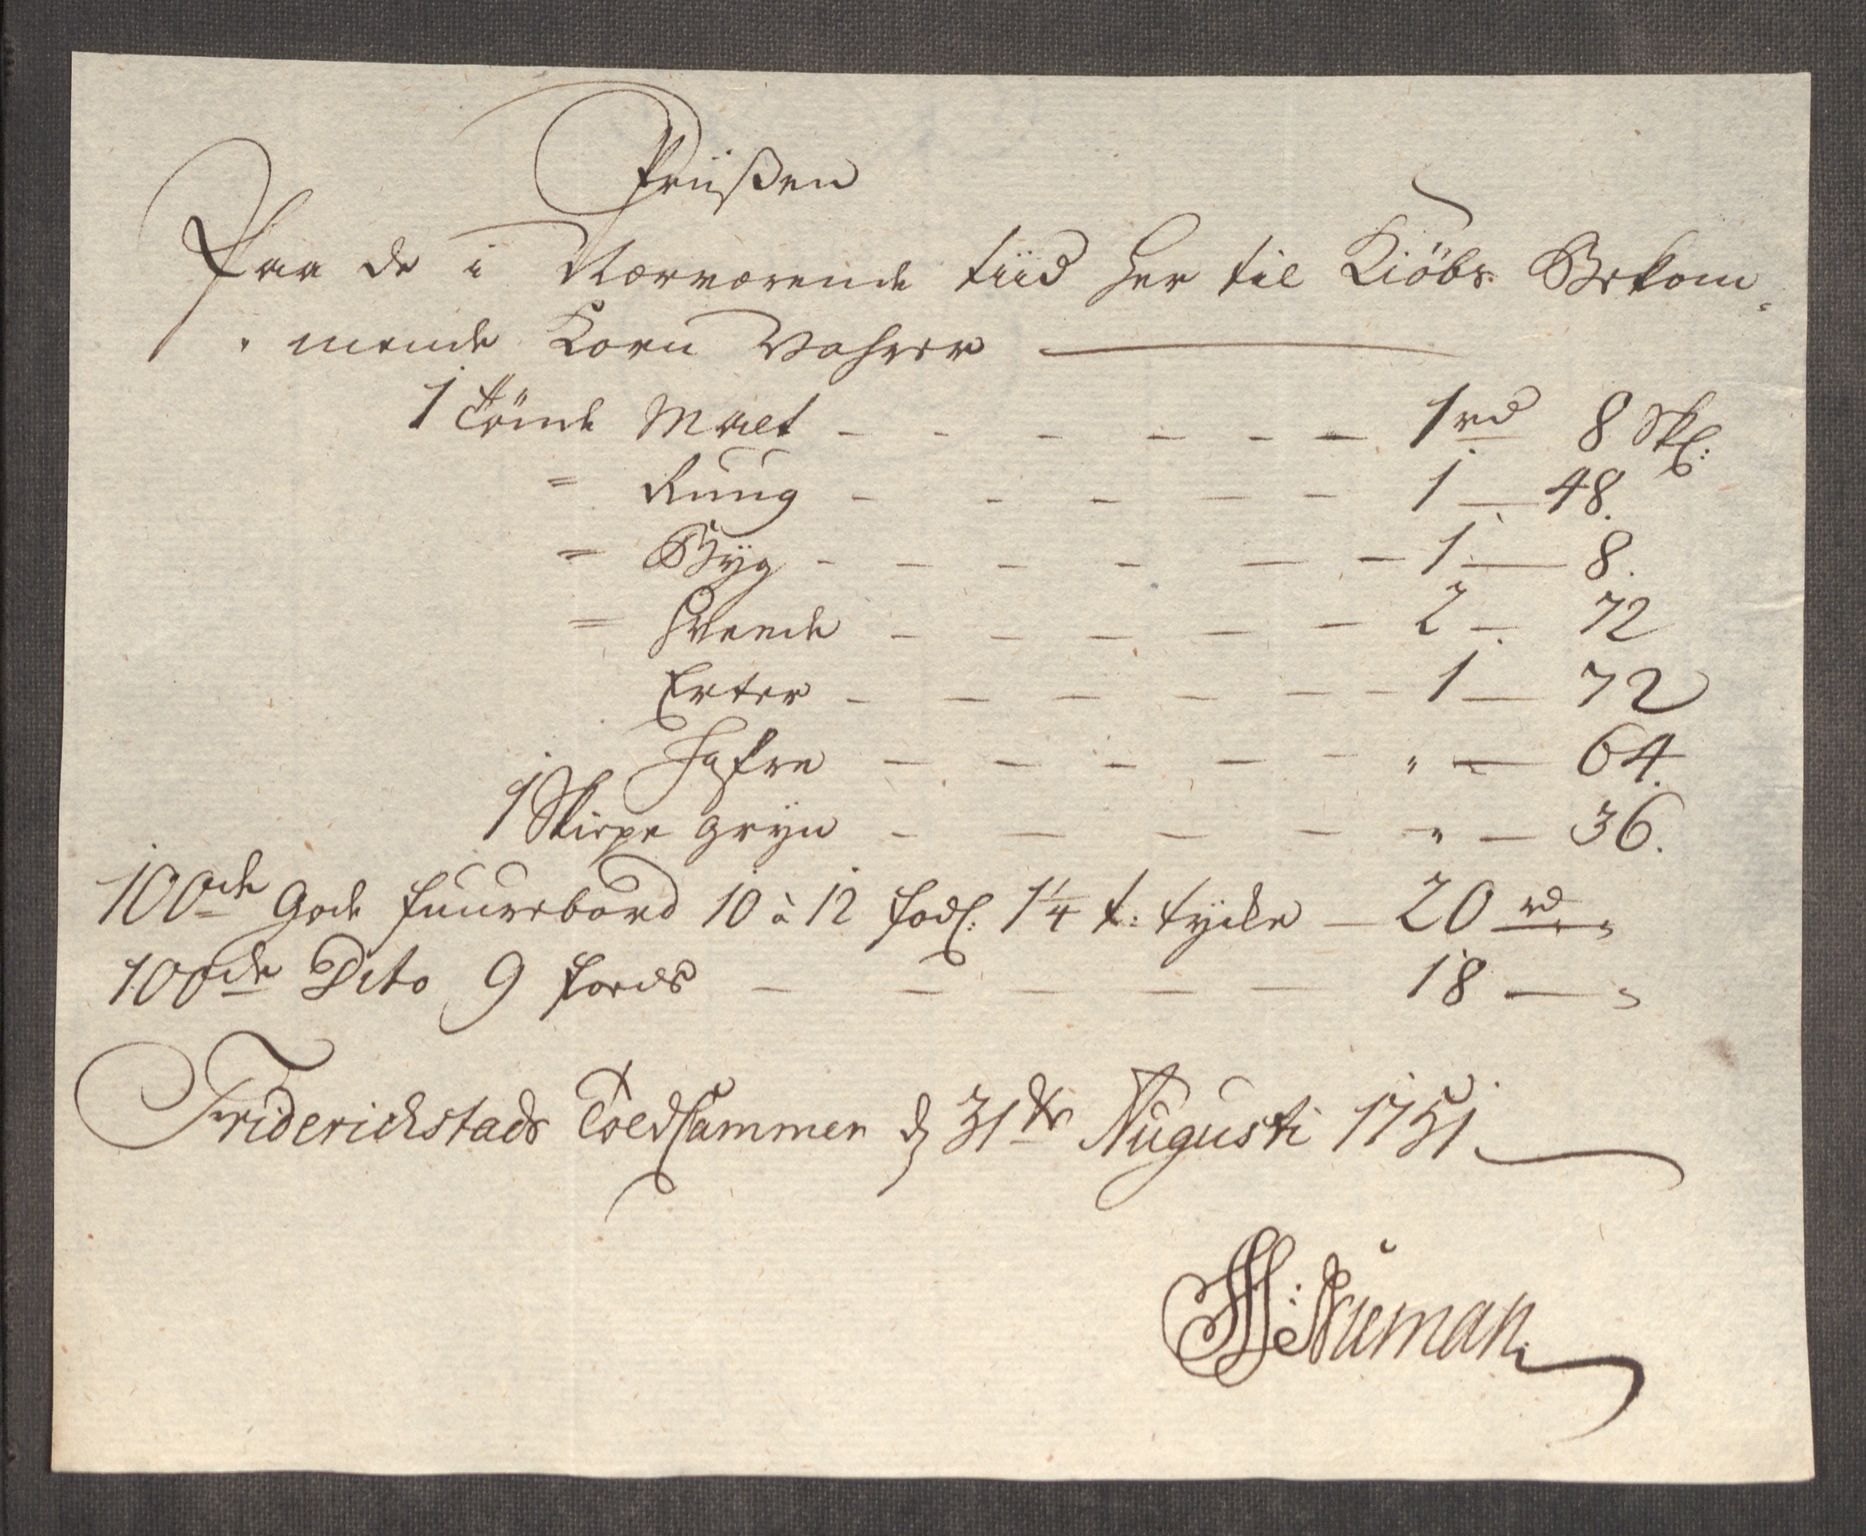 Priißen
Paa de i Nærværende tiid her til Kiöbs Bekom„
„mende Korn Vahrer
1 Tönde Malt — — — — — — 1 rd 8 Sk:
= Ruug — — — — — 1 — 48.
= Byg — — — — — — 1 — 8.
= Hveede — — — — — 2 — 72
Erter — — — — — — 1 — 72
Hafre — — — — — " — 64.
1 Skiepe gryn — — — — — " — 36.
100de Gode fuurebord 10 à 12 fod: 1¼ t: tycke — 20 rd "
100de Dito 9 foeds — — — — — 18 — "
Friderichstads Toldkammer d 31te Augusti 1751
Numan